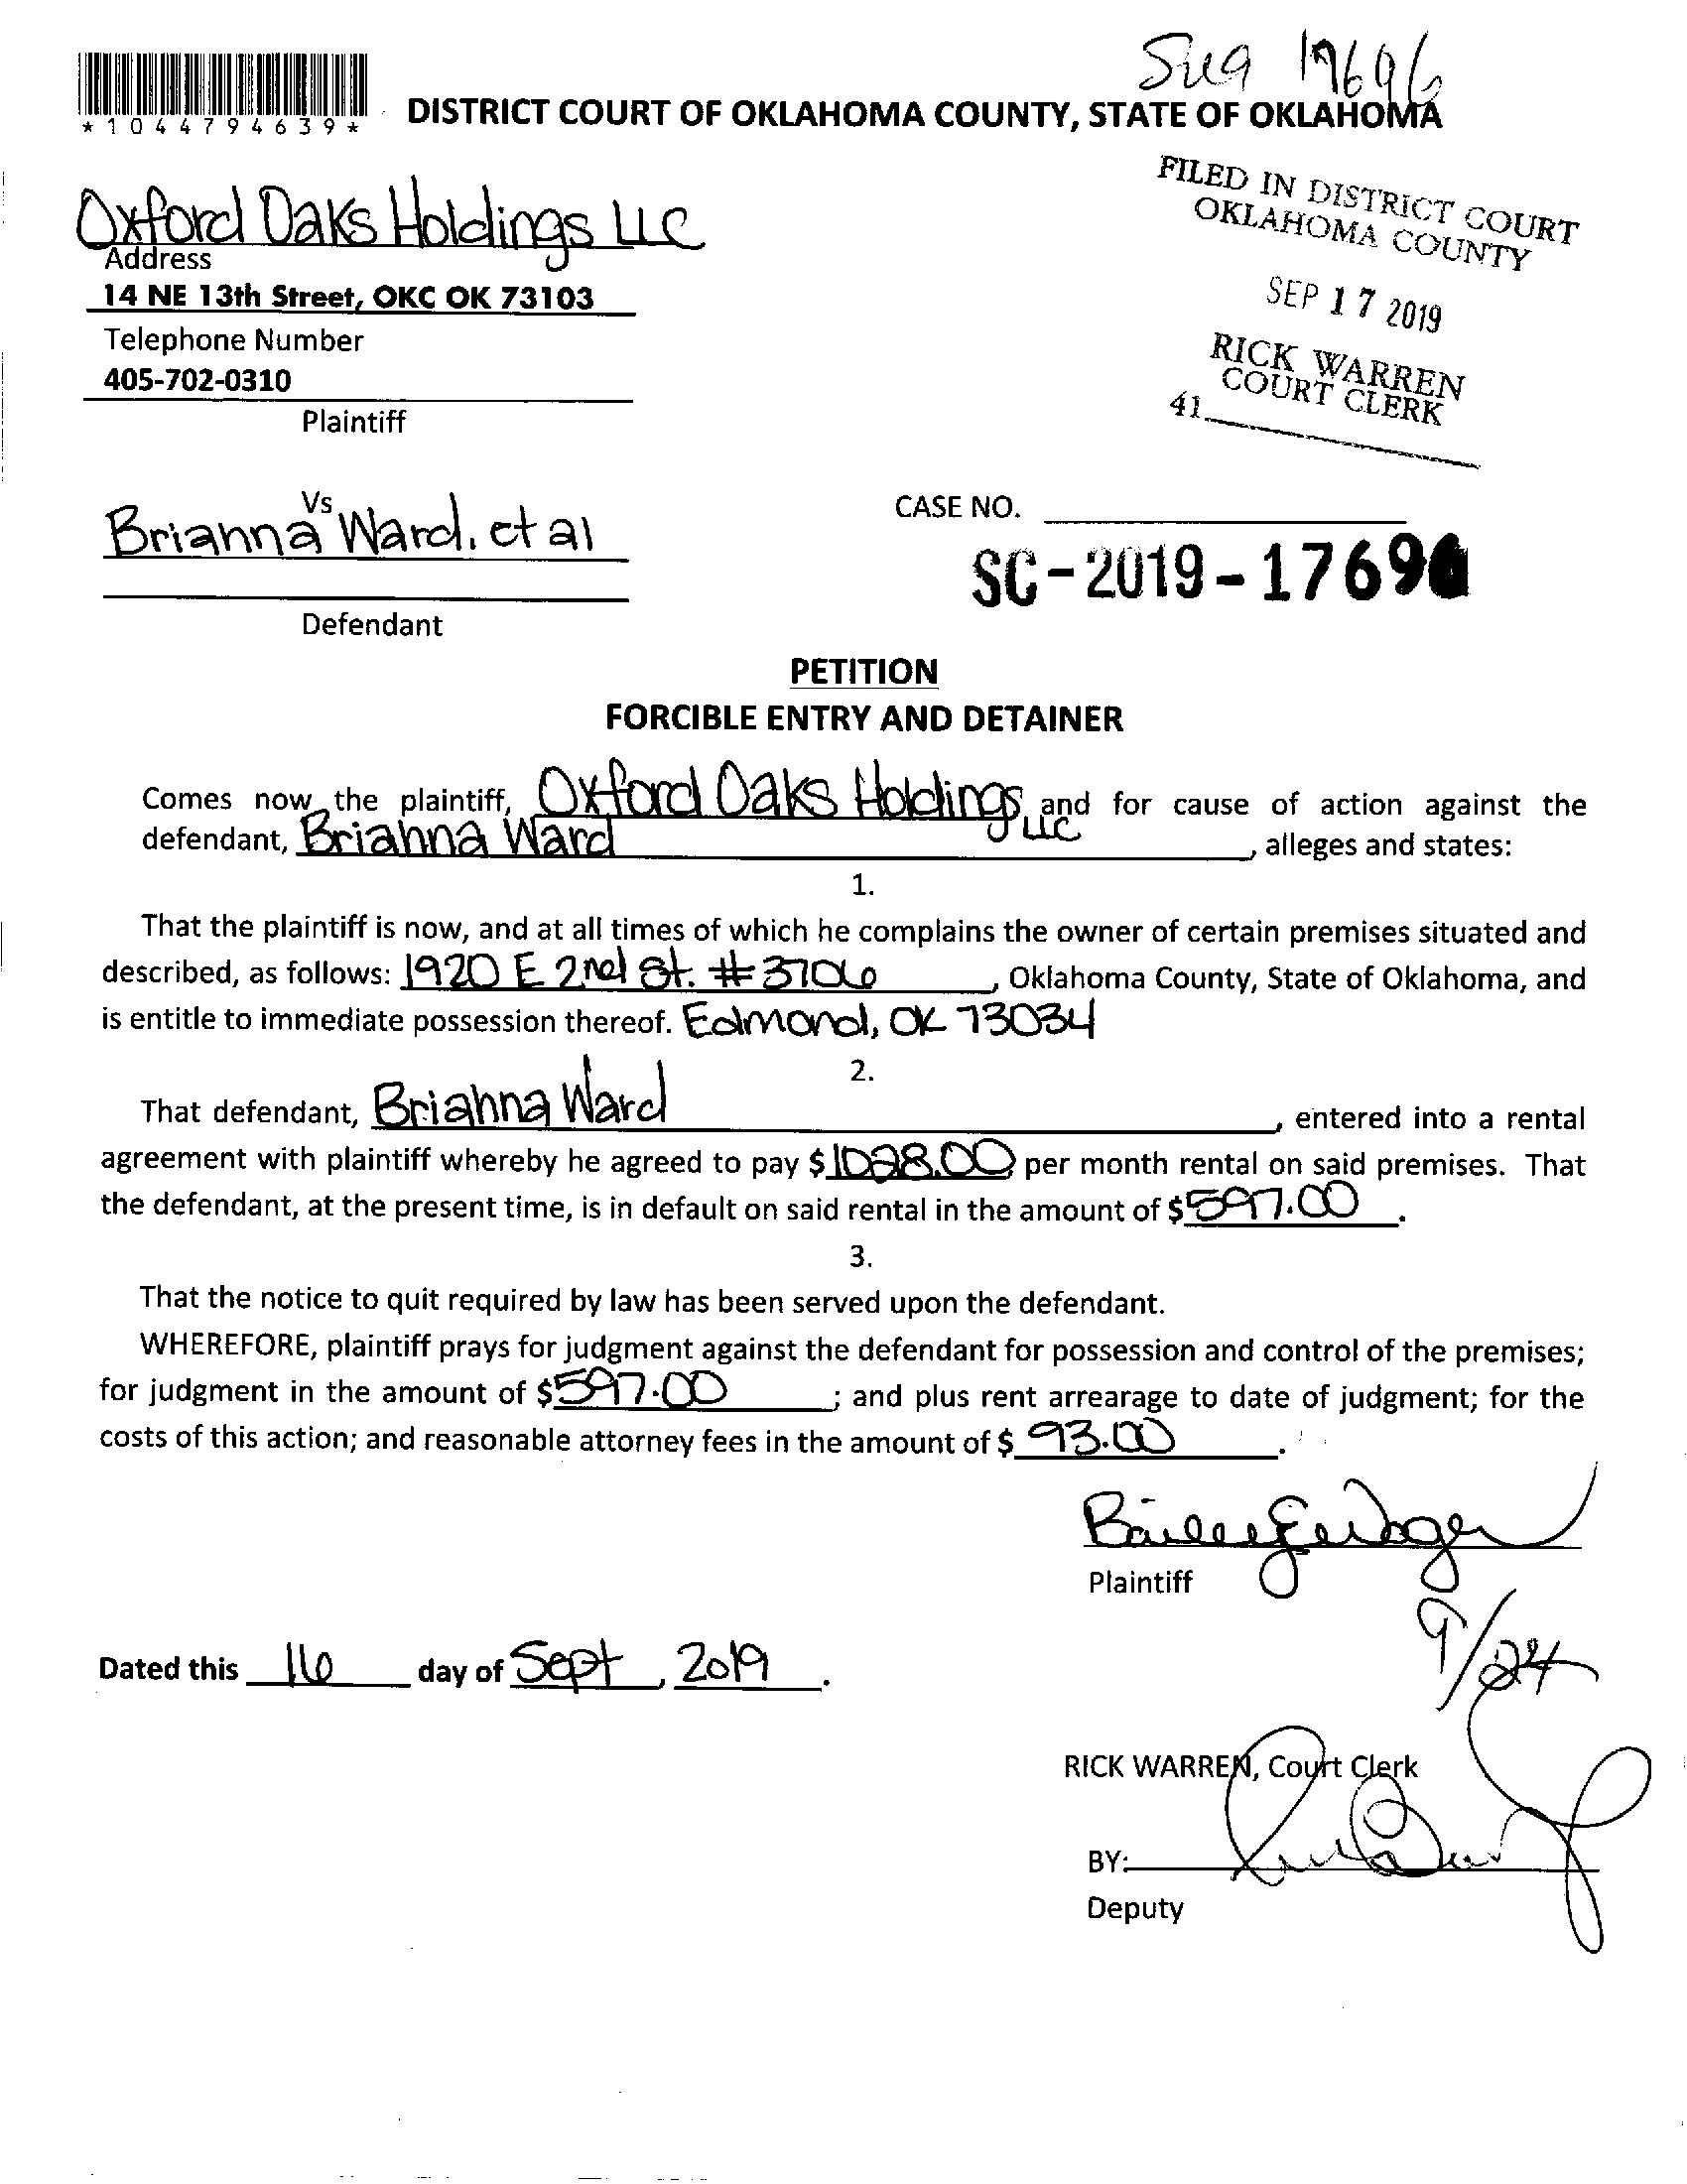 *1044794639*
DISTRICT COURT OF OKLAHOMA COUNTY, STATE OF OKLAHOMA
FILED IN DISTRICT COURT
OKLAHOMA COUNTY
SEP 17 2019
RICK WARREN
COURT CLERK
41
Oxford Oaks Holdings LLC
Address
14 NE 13th Street, OKC OK 73103
Telephone Number
405-702-0310
Plaintiff
Vs
Brianna Ward, et al
Defendant
CASE NO.
SC-2019-17696
PETITION
FORCIBLE ENTRY AND DETAINER
Comes now the plaintiff, Oxford Oaks Holdings LLC and for cause of action against the
defendant, Brianna Ward, alleges and states:
1.
That the plaintiff is now, and at all times of which he complains the owner of certain premises situated and
described, as follows: 1920 E 2nd St. #3706, Oklahoma County, State of Oklahoma, and
is entitle to immediate possession thereof. Edmond, OK 73034
2.
That defendant, Brianna Ward, entered into a rental
agreement with plaintiff whereby he agreed to pay $1028.00 per month rental on said premises. That
the defendant, at the present time, is in default on said rental in the amount of $597.00.
3.
That the notice to quit required by law has been served upon the defendant.
WHEREFORE, plaintiff prays for judgment against the defendant for possession and control of the premises;
for judgment in the amount of $597.00; and plus rent arrearage to date of judgment; for the
costs of this action; and reasonable attorney fees in the amount of $ 93.00.
Plaintiff
9/24
Dated this 16 day of Sept, 2019.
RICK WARREN, Court Clerk
BY:
Deputy